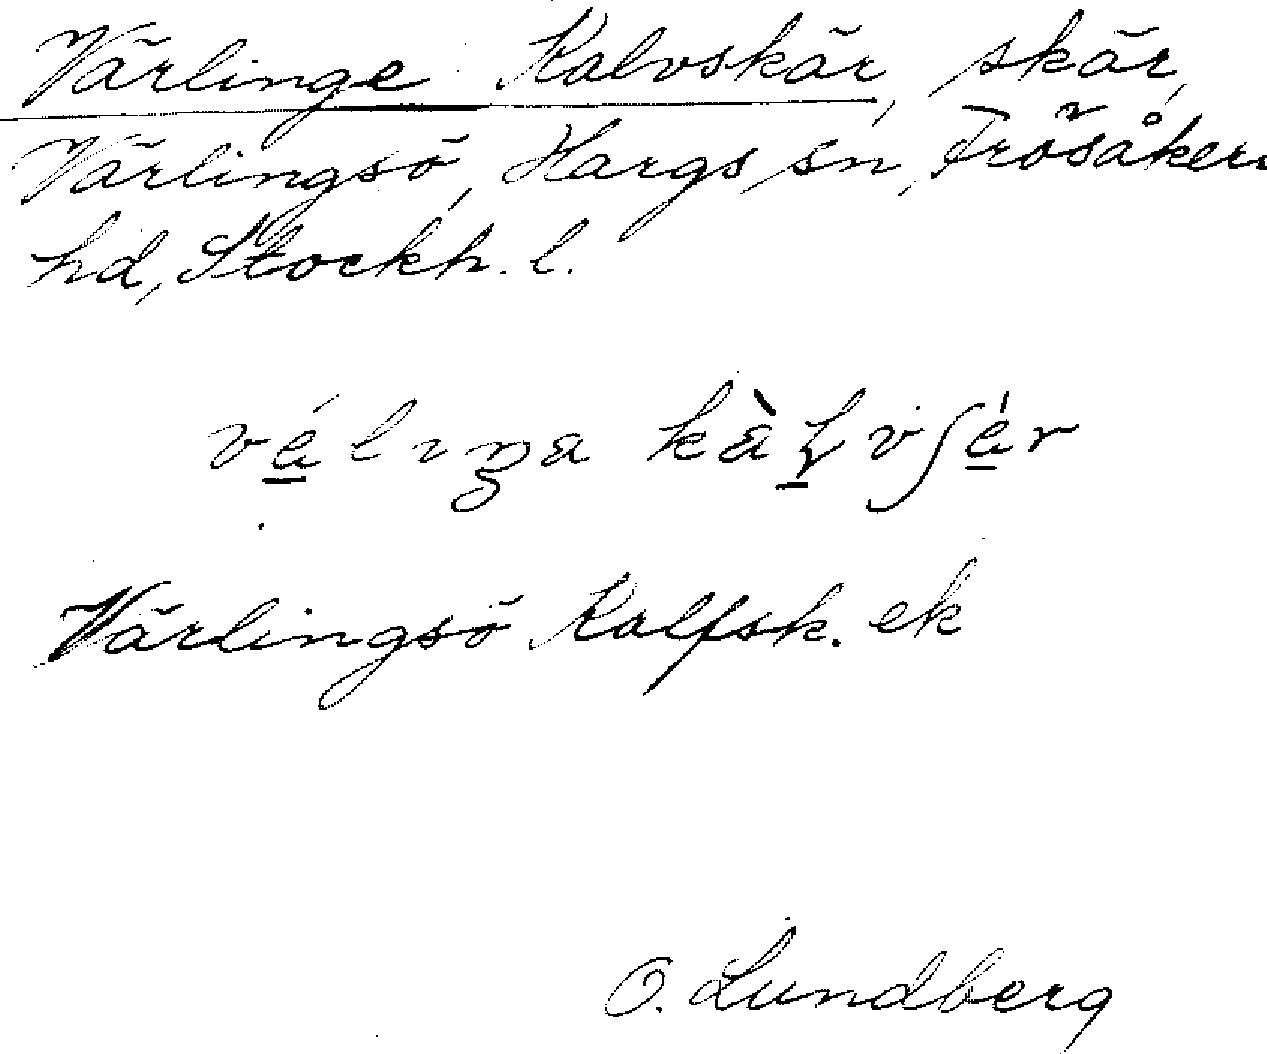 Värlinge Kalvskär, skär,
Värlingsö, Hargs sn, Frösåkers
hd, Stockh. l.
Värlingsö Kalfsk. ek
O. Lundberg